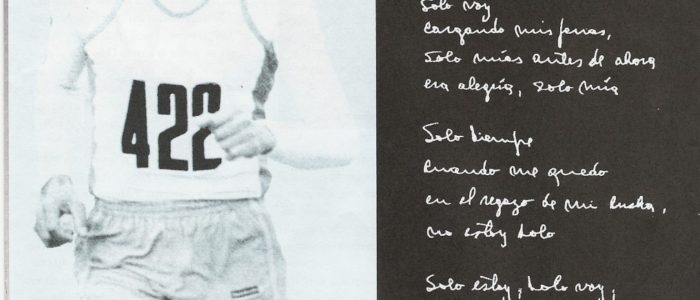 422
Solo voy
cargando mis penas,
solo mías antes de ahora
era alegría, solo mía
Solo siempre
cuando me quedo
en el regazo de mi lucha,
no estoy solo
Solo estoy, solo voy,